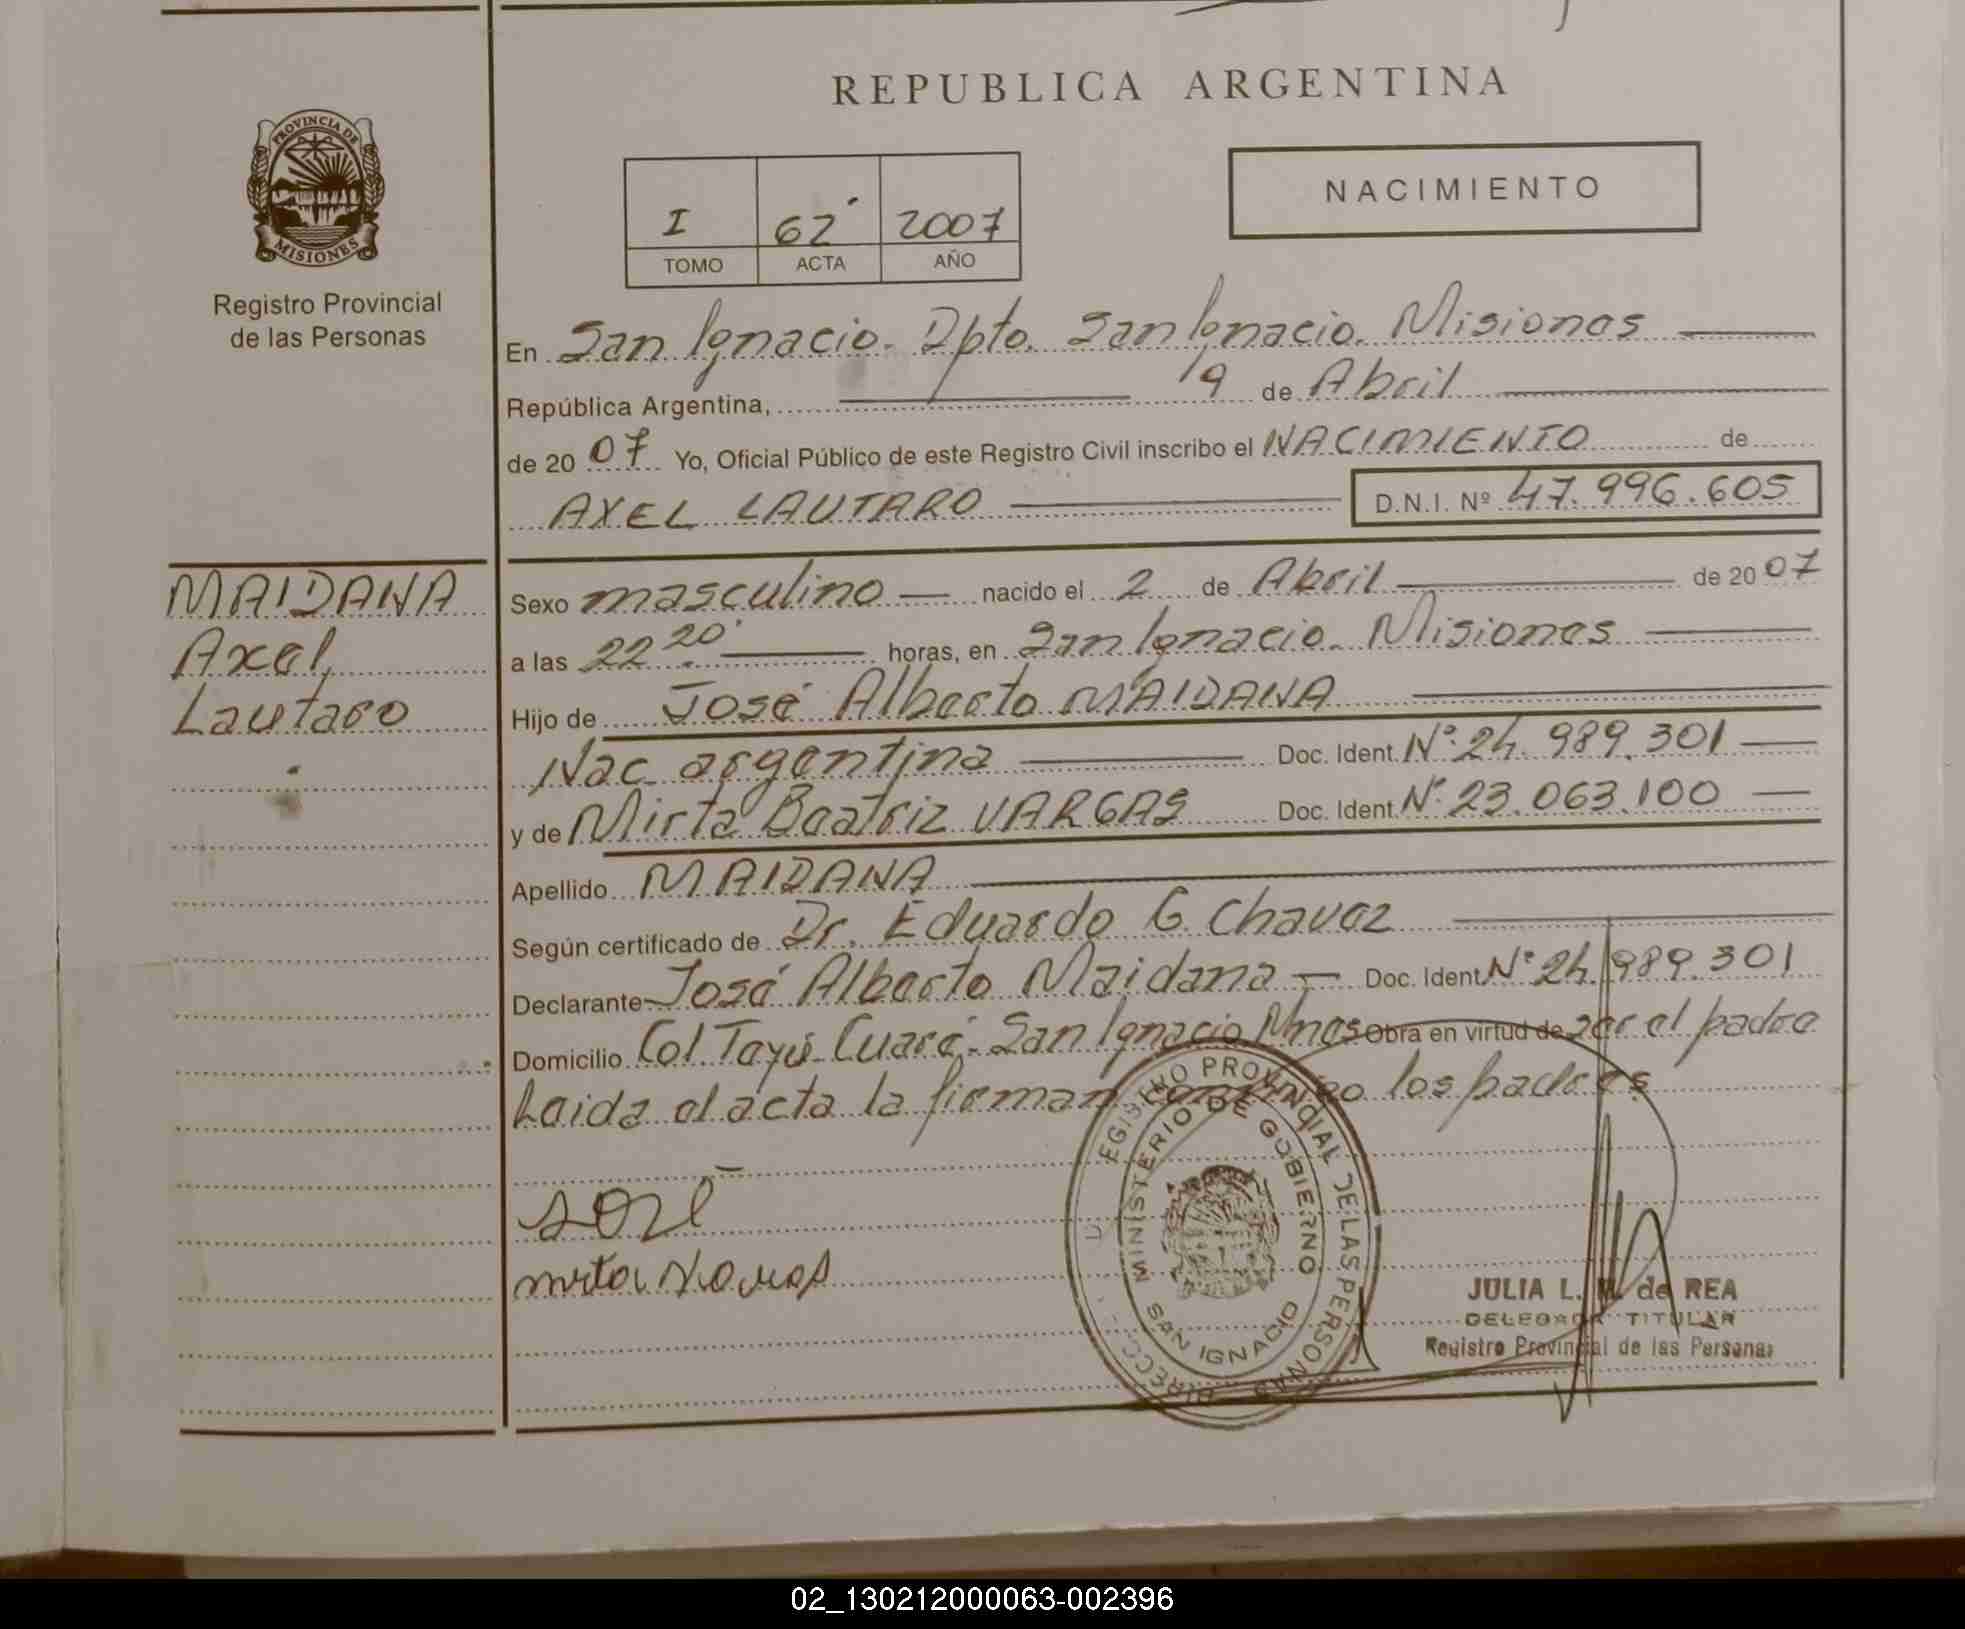 REPUBLICA ARGENTINA
PROVINCIA DE
MISIONES
Registro Provincial
de las Personas
I 62 2007
TOMO ACTA AÑO
NACIMIENTO
En San Ignacio. Dpto. San Ignacio. Misiones
República Argentina, 9 de Abril
de 2007 Yo, Oficial Público de este Registro Civil inscribo el NACIMIENTO de
AXEL LAUTARO D.N.I. Nº 47.996.605
MAIDANA
Axel
Lautaro
Sexo masculino nacido el 2 de Abril de 2007
a las 22.20 horas, en San Ignacio. Misiones
Hijo de José Alberto MAIDANA
Nac. argentina Doc. Ident. Nº 24.989.301
y de Mirta Beatriz VARGAS Doc. Ident. Nº 23.063.100
Apellido MAIDANA
Según certificado de Dr. Eduardo G. Chavez
Declarante José Alberto Maidana Doc. Ident. Nº 24.989.301
Domicilio Col Tayú Cuaré. San Ignacio Mnes Obra en virtud de ser el padre
Leida el acta la firman conmigo los padres
REGISTRO PROVINCIAL DE LAS PERSONAS
MINISTERIO DE GOBIERNO
SAN IGNACIO
JULIA L. de REA
DELEGADA TITULAR
Registro Provincial de las Personas
02_130212000063-002396